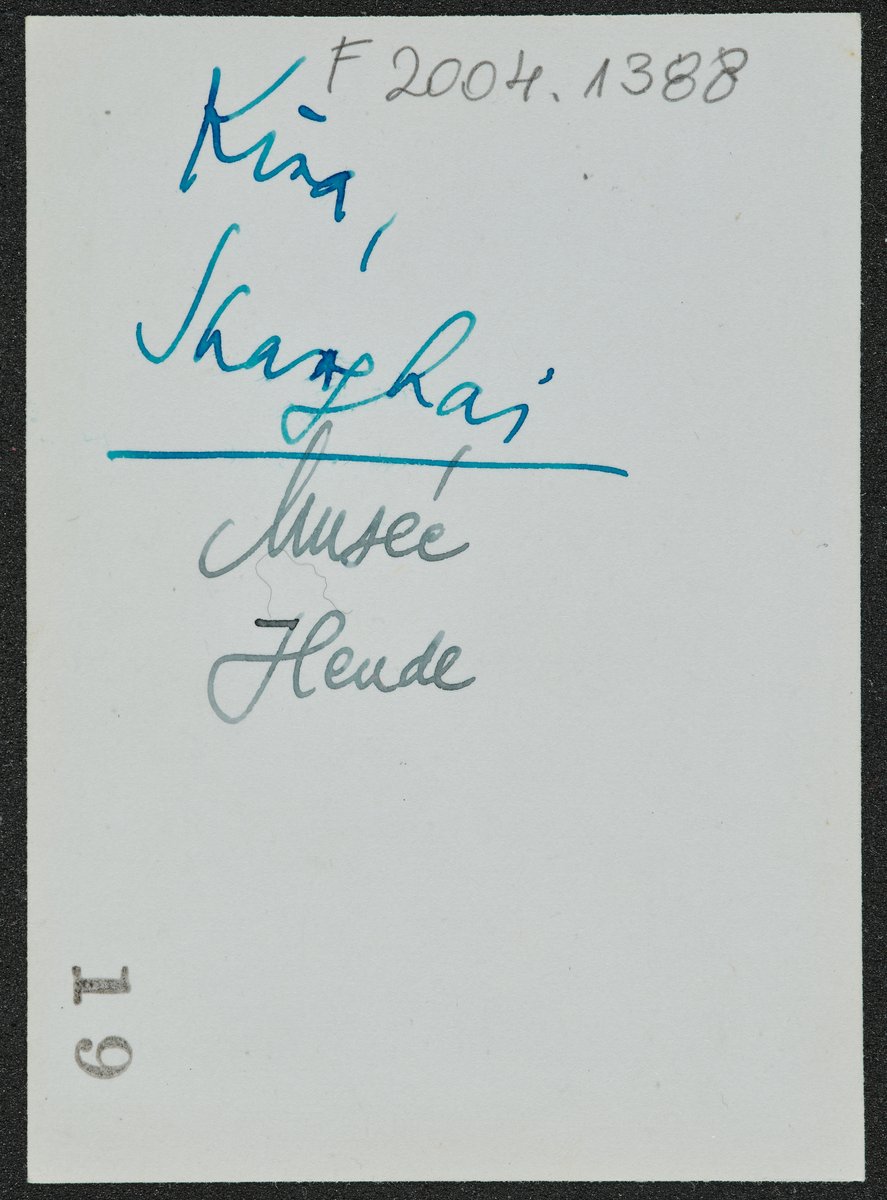 F 2004.1388
Kina,
Shanghai
Museé
Heude
19